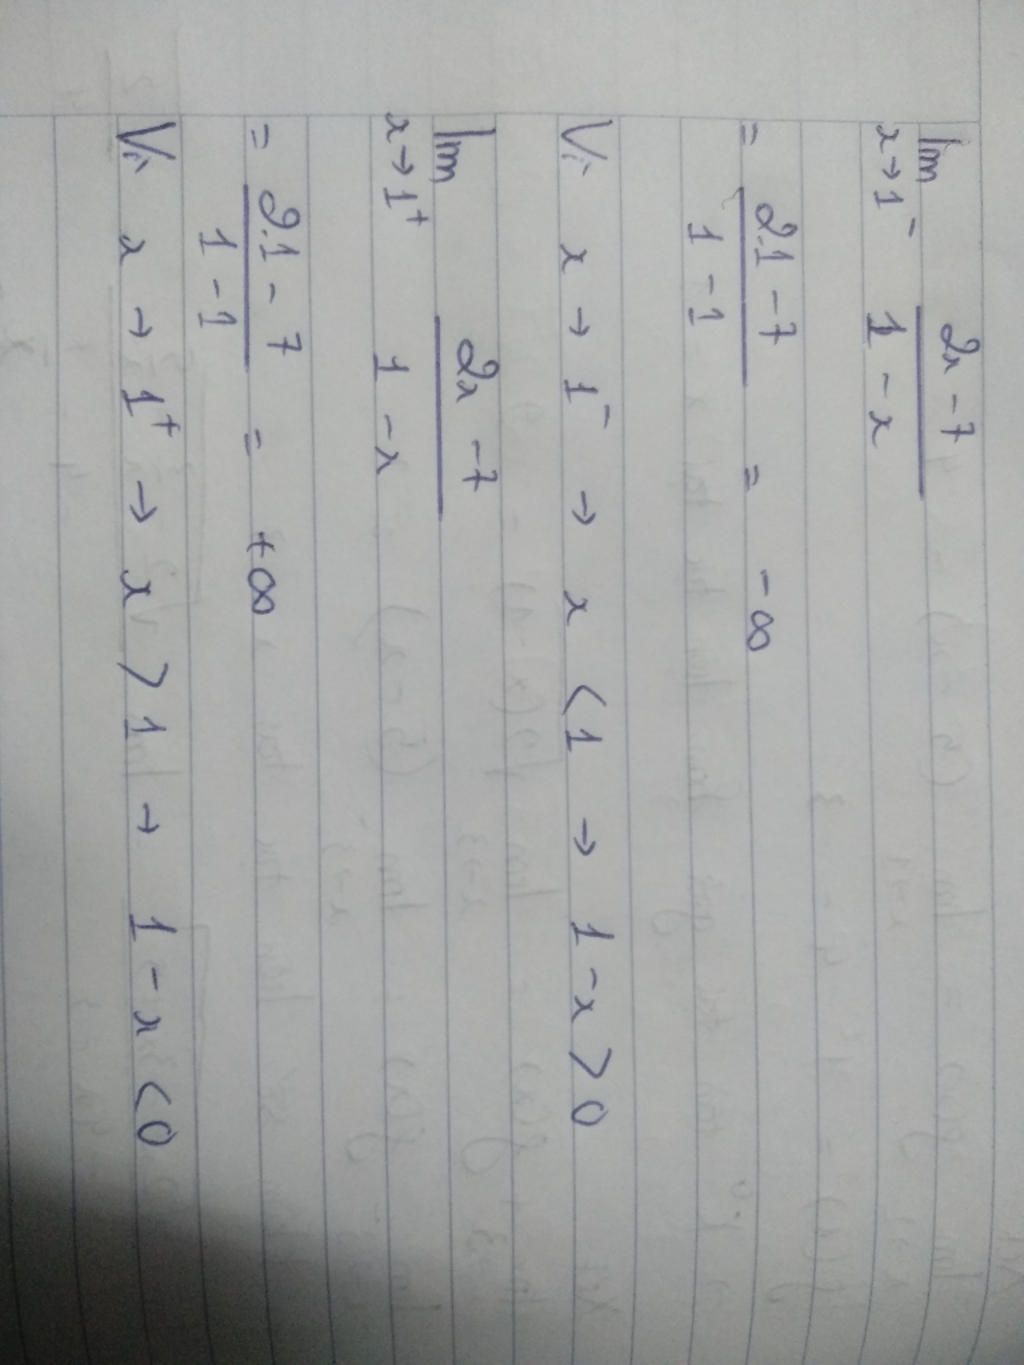 lim 2x - 7
x→1⁻ 1 - x
= 2.1 - 7 = -∞
1 - 1
Vì x → 1⁻ → x < 1 → 1 - x > 0
lim 2x - 7
x→1⁺ 1 - x
= 2.1 - 7 = +∞
1 - 1
Vì x → 1⁺ → x > 1 → 1 - x < 0